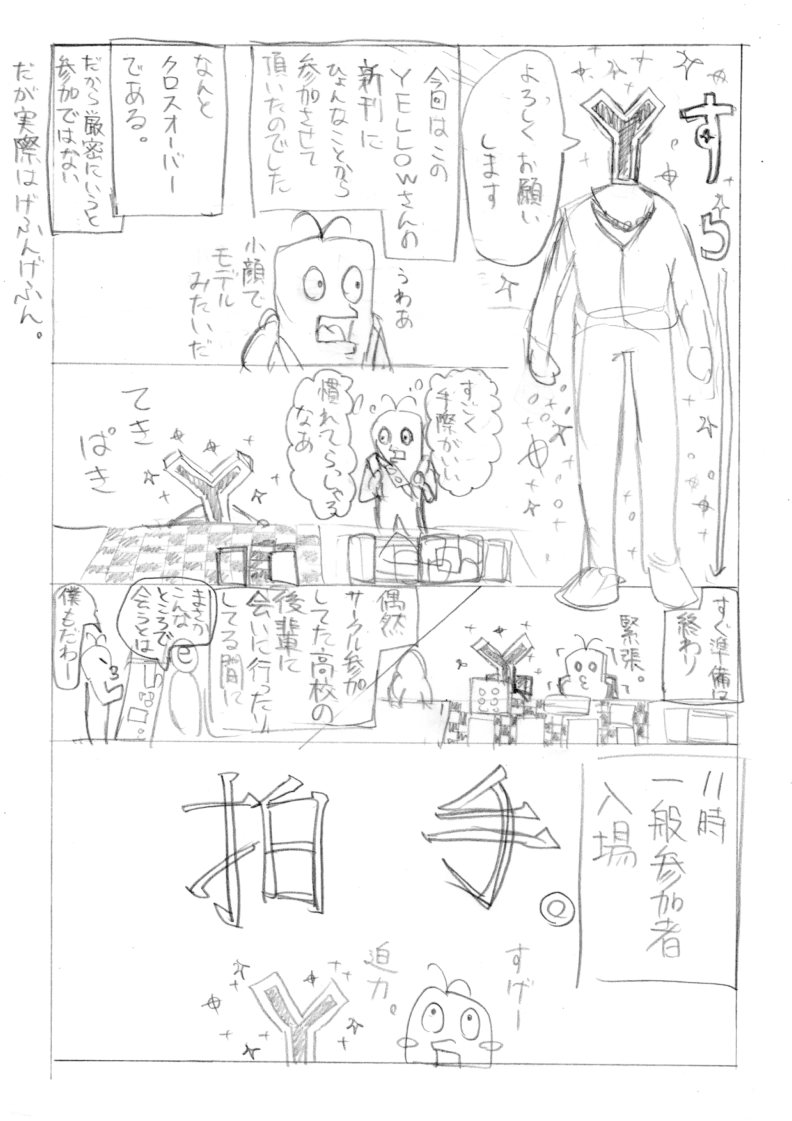 すら
よろしくお願い
します
今回はこの
YELLOWさんの
新刊に
ひょんなことから
参加させて
頂いたのでした
なんと
クロスオーバー
である。
だから厳密にいうと
参加ではない
だが実際はげふんげふん。
うわあ
小顔で
モデル
みたいだ
すごく
手際がいい
慣れてらっしゃる
なあ
てき
ぱき
すぐ準備は
終わり
緊張。
偶然
サークル参加
してた高校の
後輩に
会いに行ったり
してる間に
まさか
こんな
ところで
会うとは
僕もだわー
11時
一般参加者
入場
拍手
すげー
迫力。